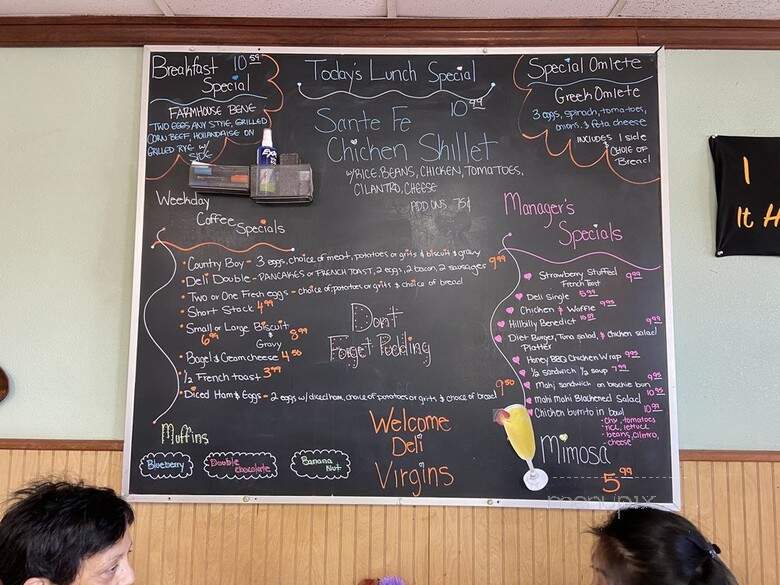 Breakfast 10 59
Special
FARMHOUSE BENE
TWO EGGS ANY STYLE, GRILLED
CORN BEEF, HOLLANDAISE ON
GRILLED RYE W/
SIDE
Today's Lunch Special
Sante Fe 10 99
Chicken Skillet
W/RICE, BEANS, CHICKEN, TOMATOES,
CILANTRO, CHEESE
ADD ONS 75¢
Special Omlete
Greek Omlete
3 eggs, spinach, tomatoes,
onions, & feta cheese
INCLUDES 1 side
& CHOICE OF
Bread
Weekday
Coffee Specials
• Country Boy - 3 eggs, choice of meat, potatoes or grits & biscuit & gravy
• Deli Double - PANCAKES or FRENCH TOAST, 2 eggs, 2 bacon, 2 sausages 9 99
• Two or One Fresh eggs - choice of potatoes or grits & choice of bread
• Short Stack 4 99
• Small or Large Biscuit
6 99 & 8 99
Gravy
• Bagel & Cream cheese 4 50
• 1/2 French toast 3 99
• Diced Ham & Eggs - 2 eggs w/ diced ham, choice of potatoes or grits & choice of bread 9 50
Don't
Forget Pudding
Manager's
Specials
Strawberry Stuffed 9 99
French Toast
Deli Single 5 99
Chicken & Waffle 9 99
Hillbilly Benedict 10 59
Diet Burger, Tuna salad, & chicken salad 9 99
Platter
Honey BBQ Chicken Wrap 9 99
1/2 sandwich 1/2 soup 7 99
Mahi sandwich on brioche bun 9 99
Mahi Mahi Blackened Salad 10 99
Chicken burrito in bowl 10 99
tomatoes
rice, lettuce
beans, cilantro,
cheese
Muffins
Blueberry
Double
chocolate
Banana
Nut
Welcome
Deli
Virgins
Mimosa
5 99
menupix
I
It H